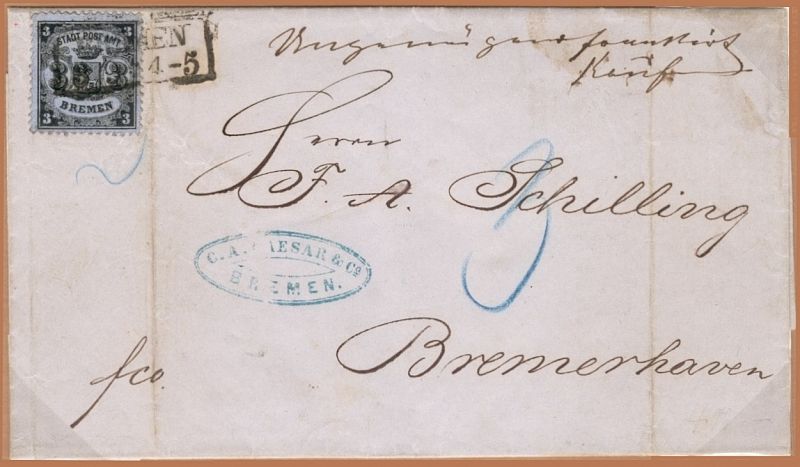 3 3
STADT POST AMT
BREMEN
3 3
MEN
4-5
Ungenügend frankirt
Herrn
F. A. Schilling
3
C. A. CAESAR & Co
BREMEN.
Bremerhaven
fco.